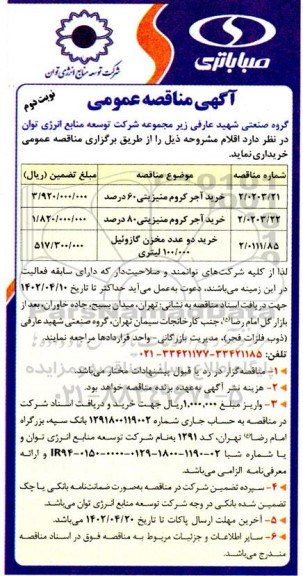 صباباتری
شرکت توسعه منابع انرژی توان
نوبت دوم
آگهی مناقصه عمومی
گروه صنعتی شهید عارفی زیر مجموعه شرکت توسعه منابع انرژی توان
در نظر دارد اقلام مشروحه ذیل را از طریق برگزاری مناقصه عمومی
خریداری نماید.
شماره مناقصه موضوع مناقصه مبلغ تضمین (ریال)
۲/۰۲۰۳/۲۱ خرید آجر کروم منیزیتی ۶۰ درصد ۳/۹۲۰/۰۰۰/۰۰۰
۲/۰۲۰۳/۲۲ خرید آجر کروم منیزیتی ۸۰ درصد ۱/۸۲۰/۰۰۰/۰۰۰
۲/۰۱۱۱/۸۵ خرید دو عدد مخزن گازوئیل ۵۱۷/۳۰۰/۰۰۰
۱۰۰/۰۰۰ لیتری
لذا از کلیه شرکت‌های توانمند و صلاحیت‌دار که دارای سابقه فعالیت
در این زمینه می‌باشند، دعوت به‌عمل می‌آید حداکثر تا تاریخ ۱۴۰۲/۰۴/۱۰
جهت دریافت اسناد مناقصه به نشانی: تهران، میدان بسیج، جاده خاوران، بعد از
بازار گل امام رضا، جنب کارخانجات سیمان تهران، گروه صنعتی شهید عارفی
(ذوب فلزات فجر)، مدیریت بازرگانی - واحد قراردادها مراجعه نمایند.
تلفن: ۳۳۴۲۱۱۸۵-۳۳۴۲۱۱۷۷-۰۲۱
۱- مناقصه‌گزار در رد یا قبول پیشنهادات مختار می‌باشد.
۲- هزینه نشر آگهی به‌عهده برنده مناقصه خواهد بود.
۳- واریز مبلغ ۱.۰۰۰.۰۰۰ ریال جهت خرید و دریافت اسناد شرکت
در مناقصه به حساب جاری شماره ۱۲۹۱۸۰۰۱۱۹۰۰۲ بانک سپه، بزرگراه
امام رضا تهران، کد ۱۲۹۱ به‌نام شرکت توسعه منابع انرژی توان و
یا شماره شبا IR۹۴-۰۱۵۰-۰۰۰۰-۰۱۲۹-۱۸۰۰-۱۱۹۰-۰۲ و ارائه
معرفی‌نامه الزامی می‌باشد.
۴- سپرده تضمین شرکت در مناقصه به‌صورت ضمانت‌نامه بانکی یا چک
تضمین شده بانکی در وجه شرکت توسعه منابع انرژی توان می‌باشد.
۵- آخرین مهلت ارسال پاکات تا تاریخ ۱۴۰۲/۰۴/۲۰ می‌باشد.
۶- سایر اطلاعات و جزئیات مربوط به مناقصه فوق در اسناد مناقصه
مندرج می‌باشد.